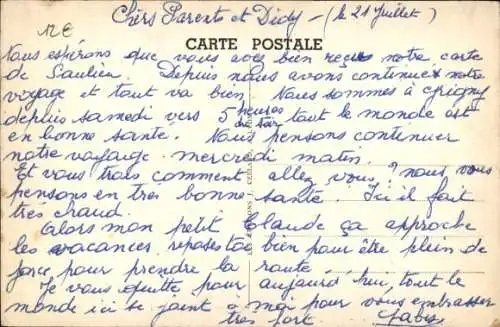 12€
Chèrs Parents et Didy - (le 21 Juillet)
CARTE POSTALE
Nous espérons que vous avez bien reçus notre carte
de Saulieu. Depuis nous avons continuer notre
voyage et tout va bien. Nous sommes à
depuis samedi vers 5 heures du soir tout le monde est
en bonne santé. Nous pensons continuer
notre voyage mercredi matin.
Et vous trois comment allez vous? nous vous
pensons en très bonne santé. Ici il fait
très chaud.
Alors mon petit Claude ça approche
les vacances reposes toi bien pour être plein de
force pour prendre la route.
Je vous quitte pour aujourd'hui, tout le
monde ici se joint à moi pour vous embrasser
très fort.